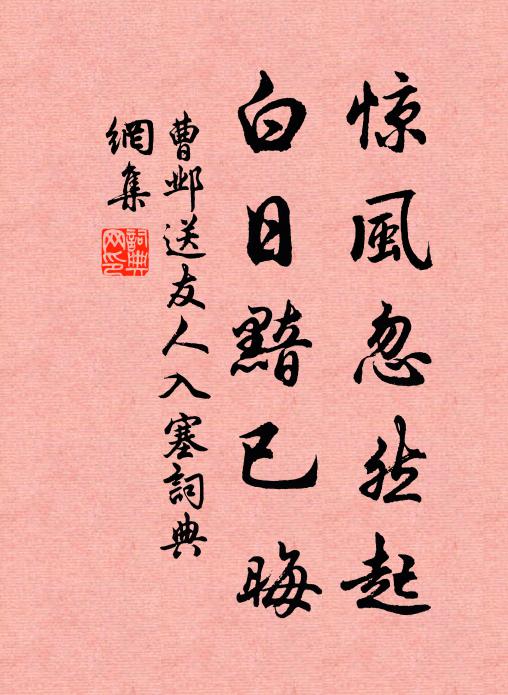 惊風忽然起
白日黯已晦
曹邺送友人入塞詞典
網集
詞典網印